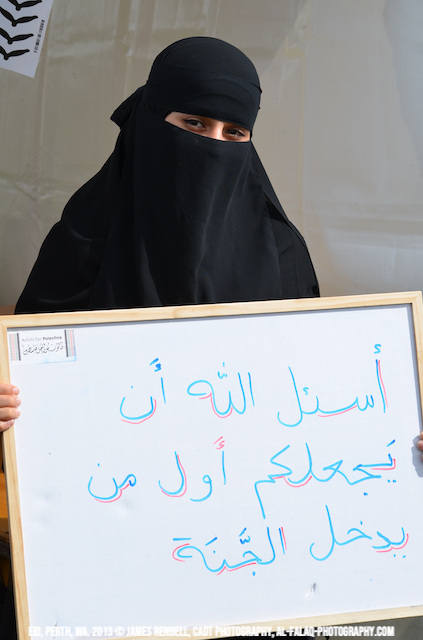 Artists for Palestine
أسئل الله أن
يَجعلكم أول من
يدخل الجَّنَة
EID, PERTH, WA. 2013 © JAMES RENDELL, CADT PHOTOGRAPHY, AL-FALAQ-PHOTOGRAPHY.COM